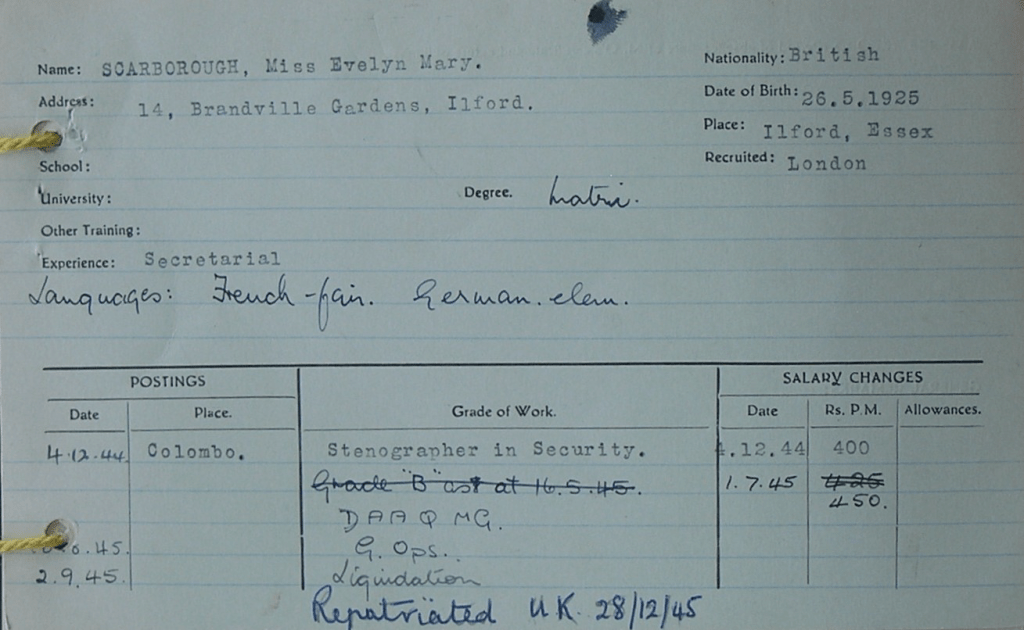 Name: SCARBOROUGH, Miss Evelyn Mary.
Nationality: British
Address: 14, Brandville Gardens, Ilford.
Date of Birth: 26.5.1925
Place: Ilford, Essex
School:
Recruited: London
University:
Degree. Matric.
Other Training:
Experience: Secretarial
Languages: French - fair. German. elem.
POSTINGS
SALARY CHANGES
Date Place. Grade of Work. Date Rs. P.M. Allowances.
4.12.44. Colombo. Stenographer in Security. 4.12.44 400
Grade "B" as at 16.5.45. 1.7.45 425
450.
DAAQMG.
.45. G. Ops.
2.9.45. Liquidation
Repatriated U.K. 28/12/45